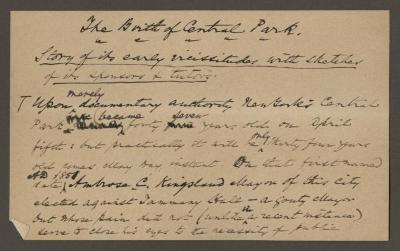 The Birth of Central Park.
Story of its early vicissitudes with sketches
of its sponsors & tutors.
merely
Upon documentary authority New York's Central
Park became seven
forty years old on April
fifth: but practically it will be only thirty four years
old comes May Day instant. On that first named
date, AD 1851 Ambrose C. Kingsland Mayor of this City
elected against Tammany Hall — a gouty Mayor
but whose pain did not (unlike a recent instance)
serve to close his eyes to the necessity of public